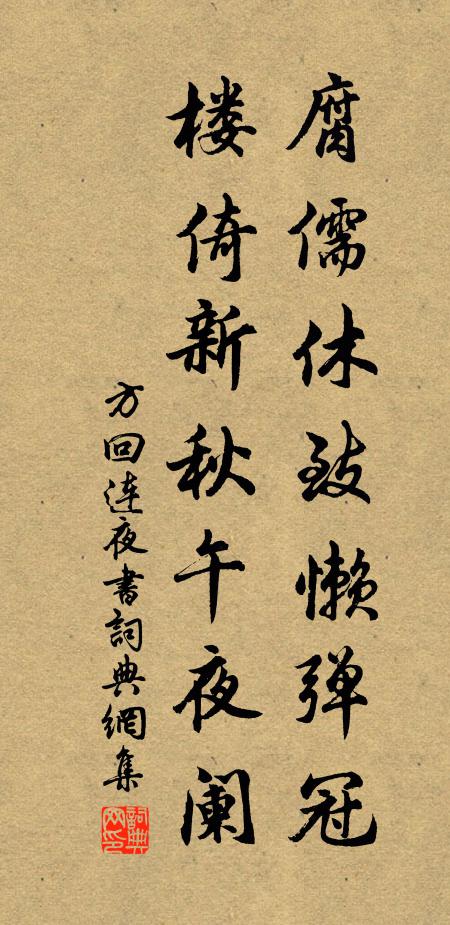 腐儒休致懒弹冠
楼倚新秋午夜阑
方回连夜书词典網集
詞典網印